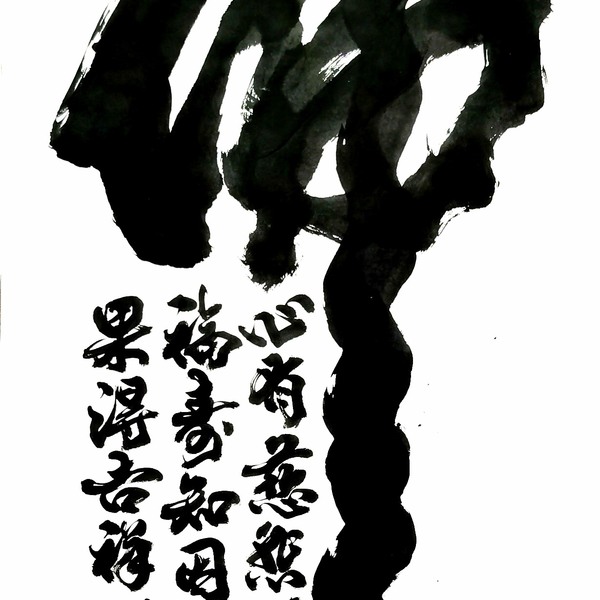 佛
心有慈悲
福壽知因
果得吉祥